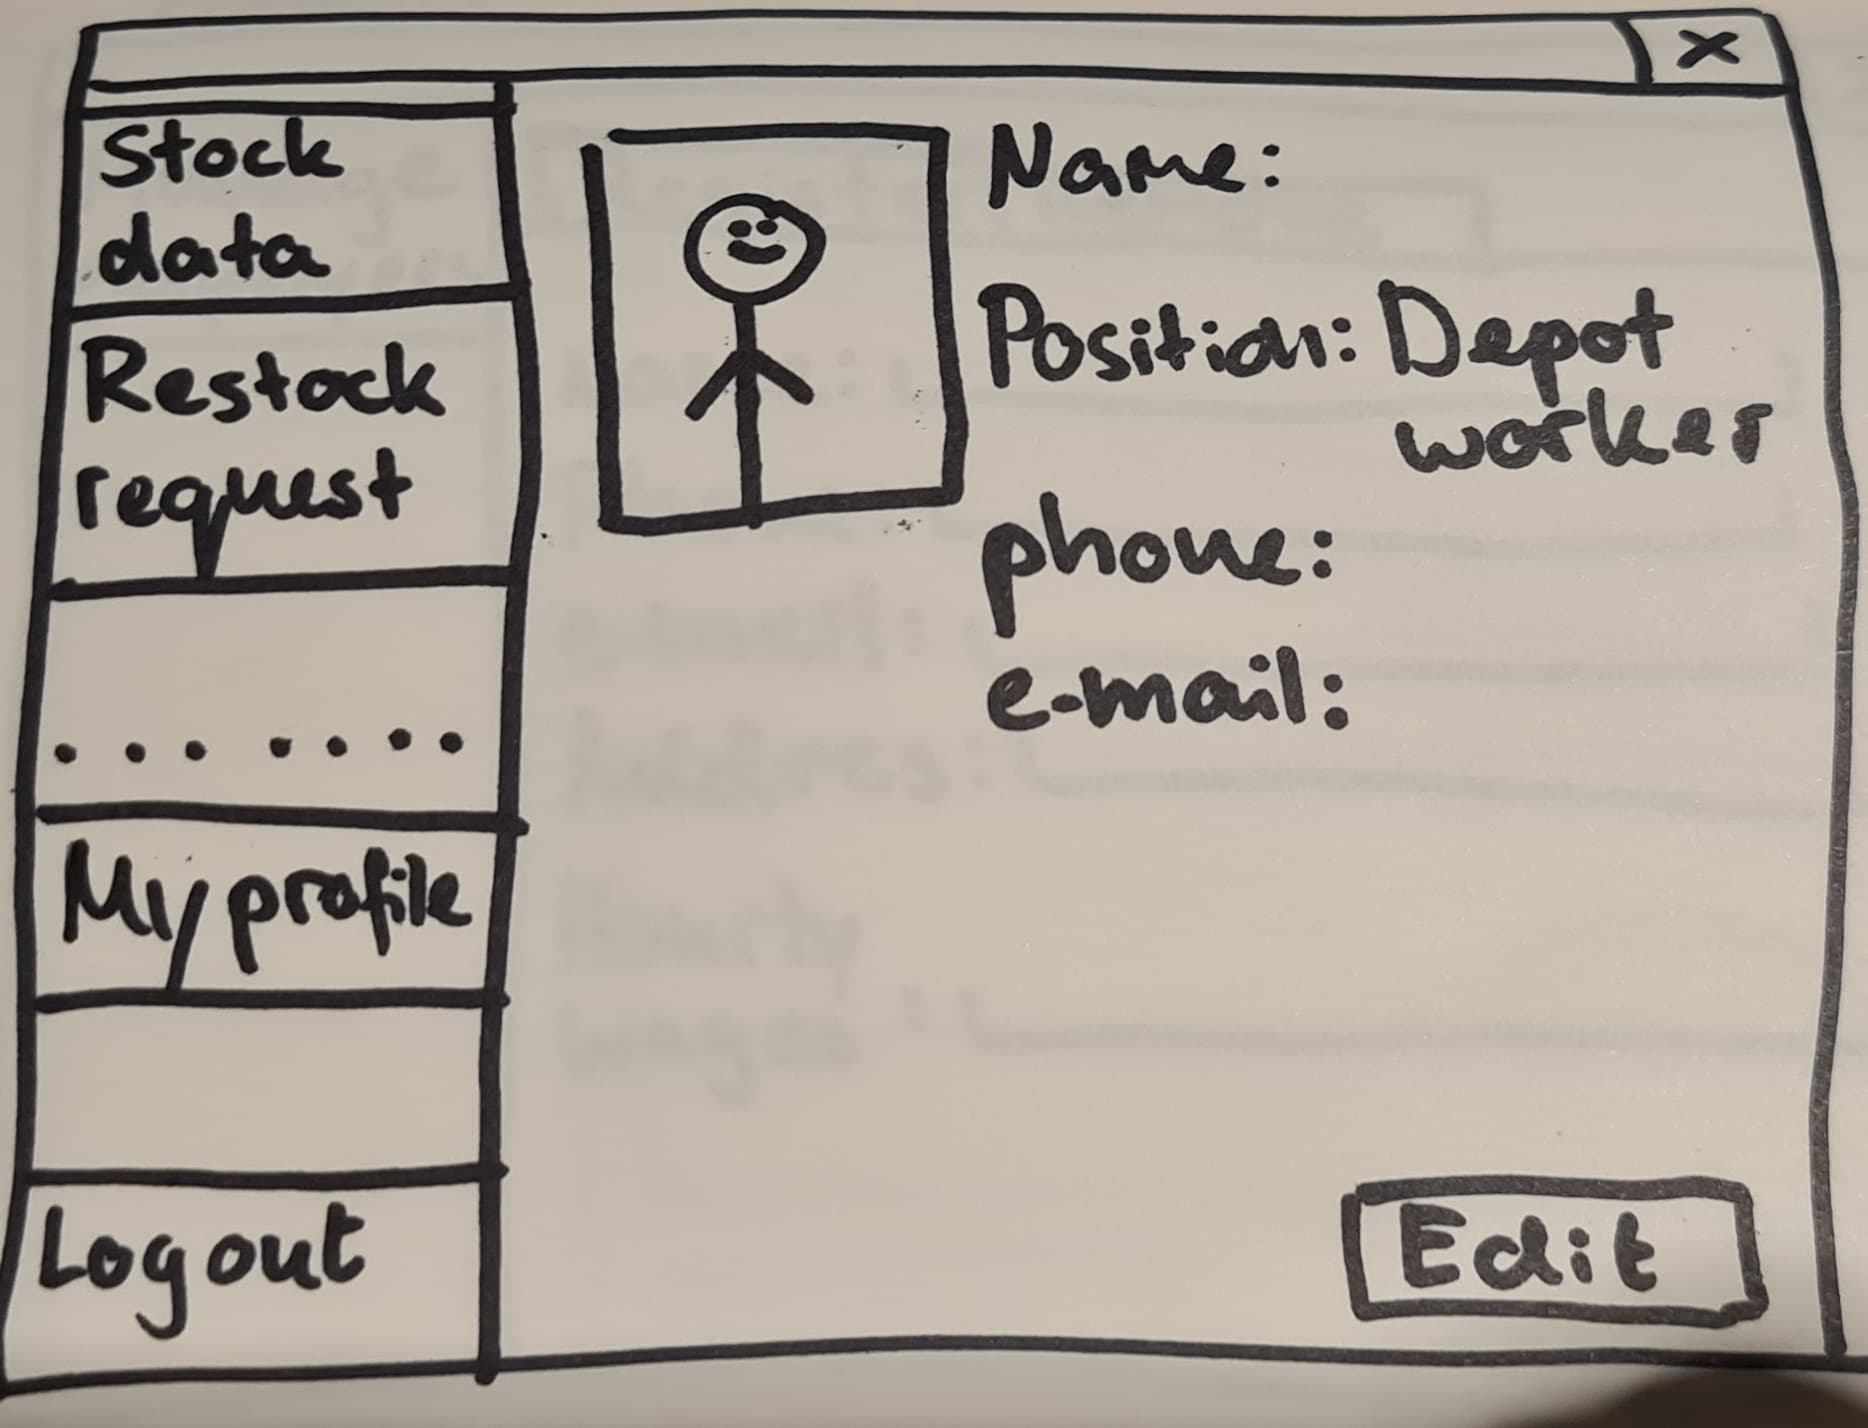 X
Stock
data
Restock
request
........
My profile
Logout
Name:
Position: Depot
worker
phone:
e-mail:
Edit